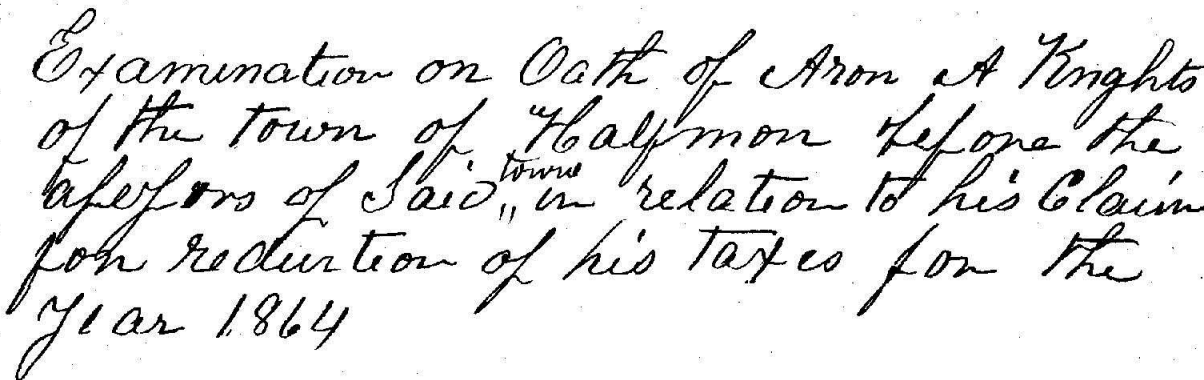 Examination on Oath of Aron A Knghts
of the town of Halfmon before the
assessors of Said town in relation to his Claim
for reduction of his taxes for the
Year 1864